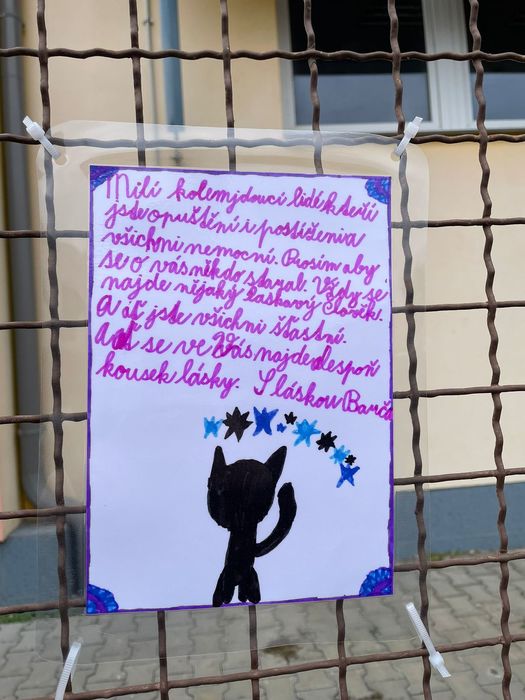 Milí kolemjdoucí lidé kteří
jste opuštění i postižení a
všichni nemocní. Prosím aby
se o vás někdo staral. Vždy se
najde nějaký laskavý člověk.
A ať jste všichni šťastní.
A ať se ve Vás najde alespoň
kousek lásky. S láskou Barča